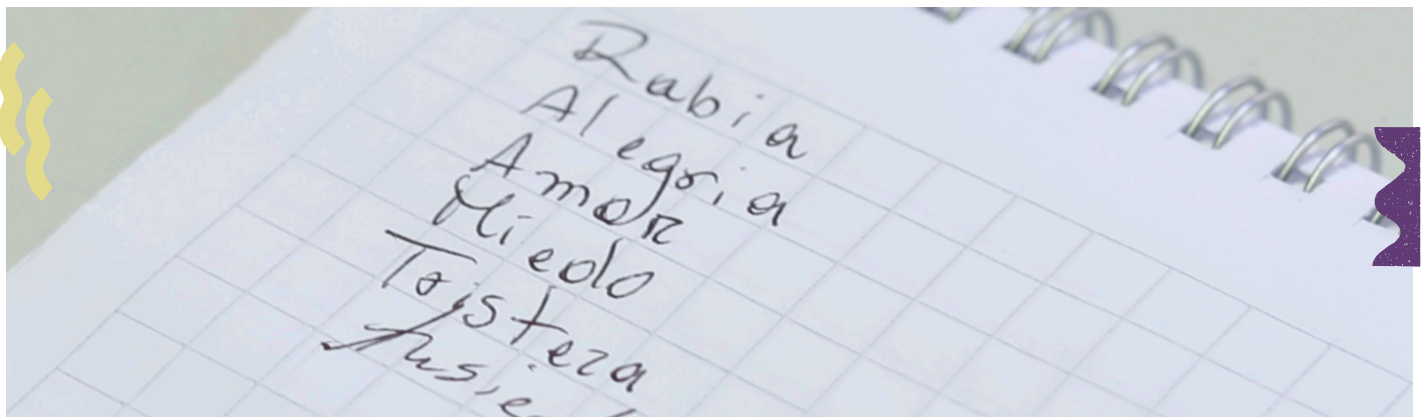 Rabia
Alegria
Amor
Miedo
Tristeza